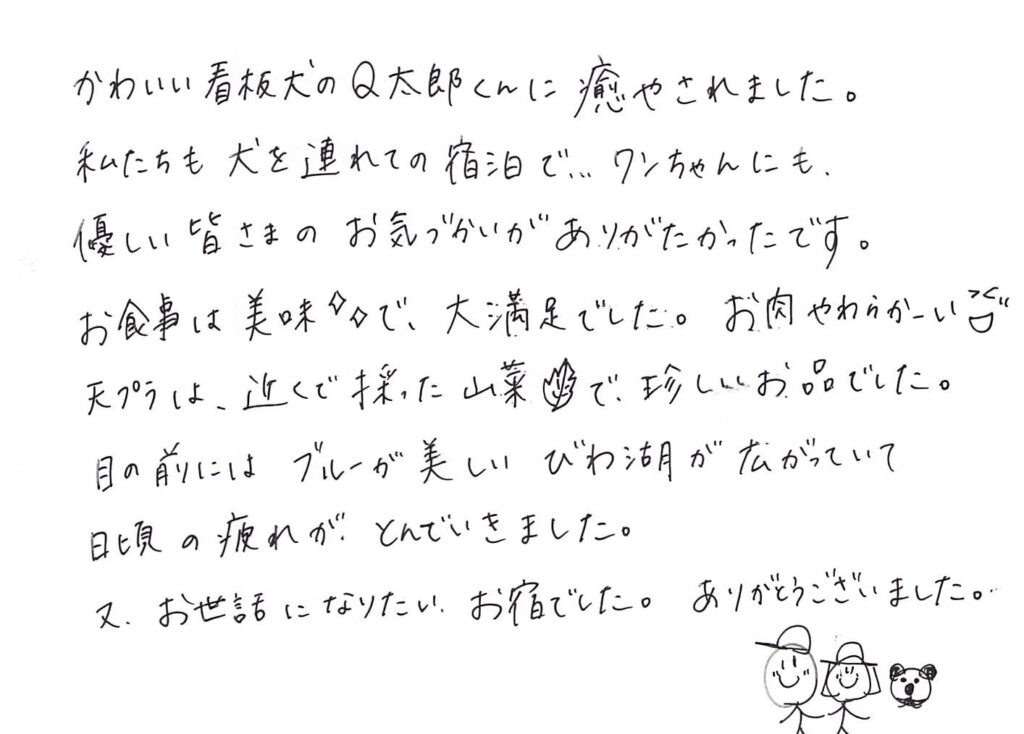 かわいい看板犬のQ太郎くんに癒やされました。
私たちも犬を連れての宿泊で… ワンちゃんにも、
優しい皆さまのお気づかいがありがたかったです。
お食事は美味で、大満足でした。お肉やわらかーい
天プラは、近くで採った山菜で、珍しいお品でした。
目の前にはブルーが美しいびわ湖が広がっていて
日頃の疲れがとんでいきました。
又、お世話になりたいお宿でした。ありがとうございました。